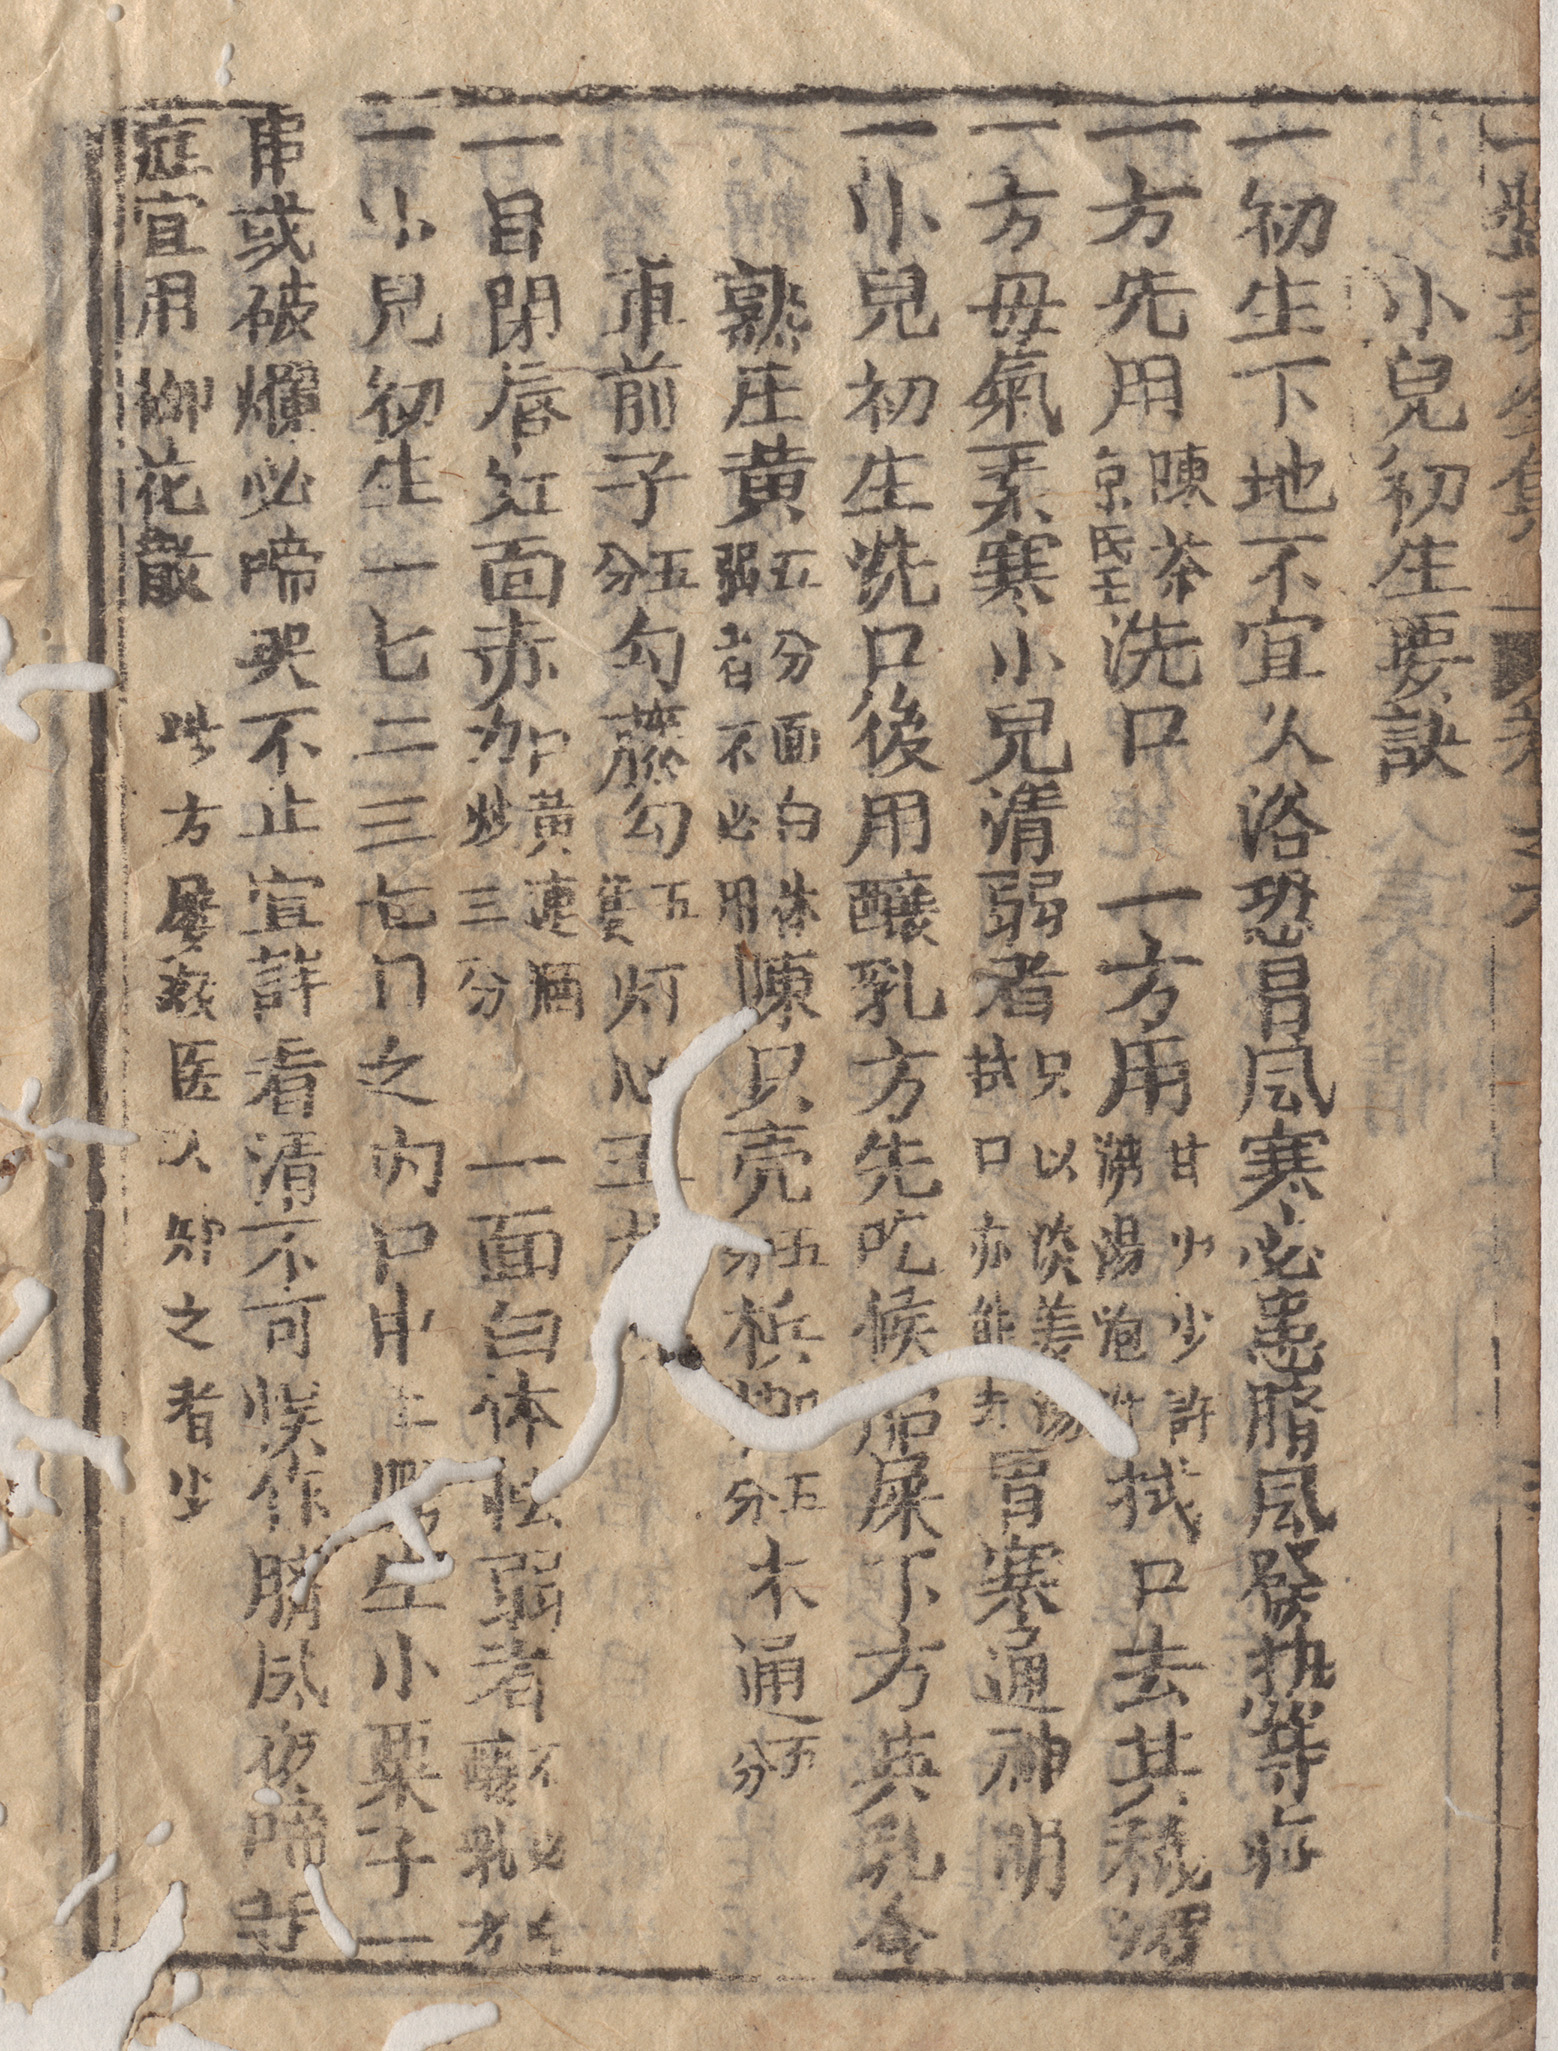 小兒初生要訣
一初生下地不宜久洛恐冒風寒必患臍風發执等症
一方先用陳茶京民王洗口 一方用甘少少許沸湯泡汁拭口去其穢沼
一方母氣素寒小兒清弱者只以淡姜湯拭口亦能去胃寒通神明
一小兒初生洗口後用釀乳方先吃候胎屎下方與乳食
熟庄黄五分面白体弱者不必用陳只壳五分梹榔五分木通五分
車前子五分勾藤勾五隻灯心
一目閉唇红面赤加口黄連酒炒三分 一面白体怯弱者不必釀乳方
一小兒初生一七二三七日之内口中上腭生小粟子一
串或破爛必啼哭不止宜詳看清不可悞作臍風夜啼
症宜用柳花散 此方屡效医人知之者少